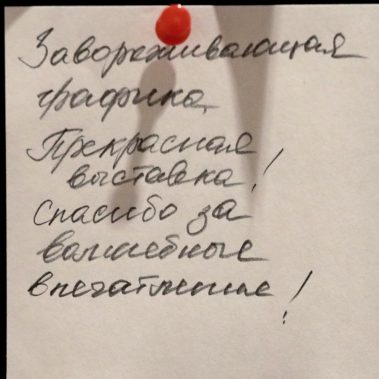 Завораживающая
графика.
Прекрасная
выставка!
Спасибо за
волшебные
впечатление!